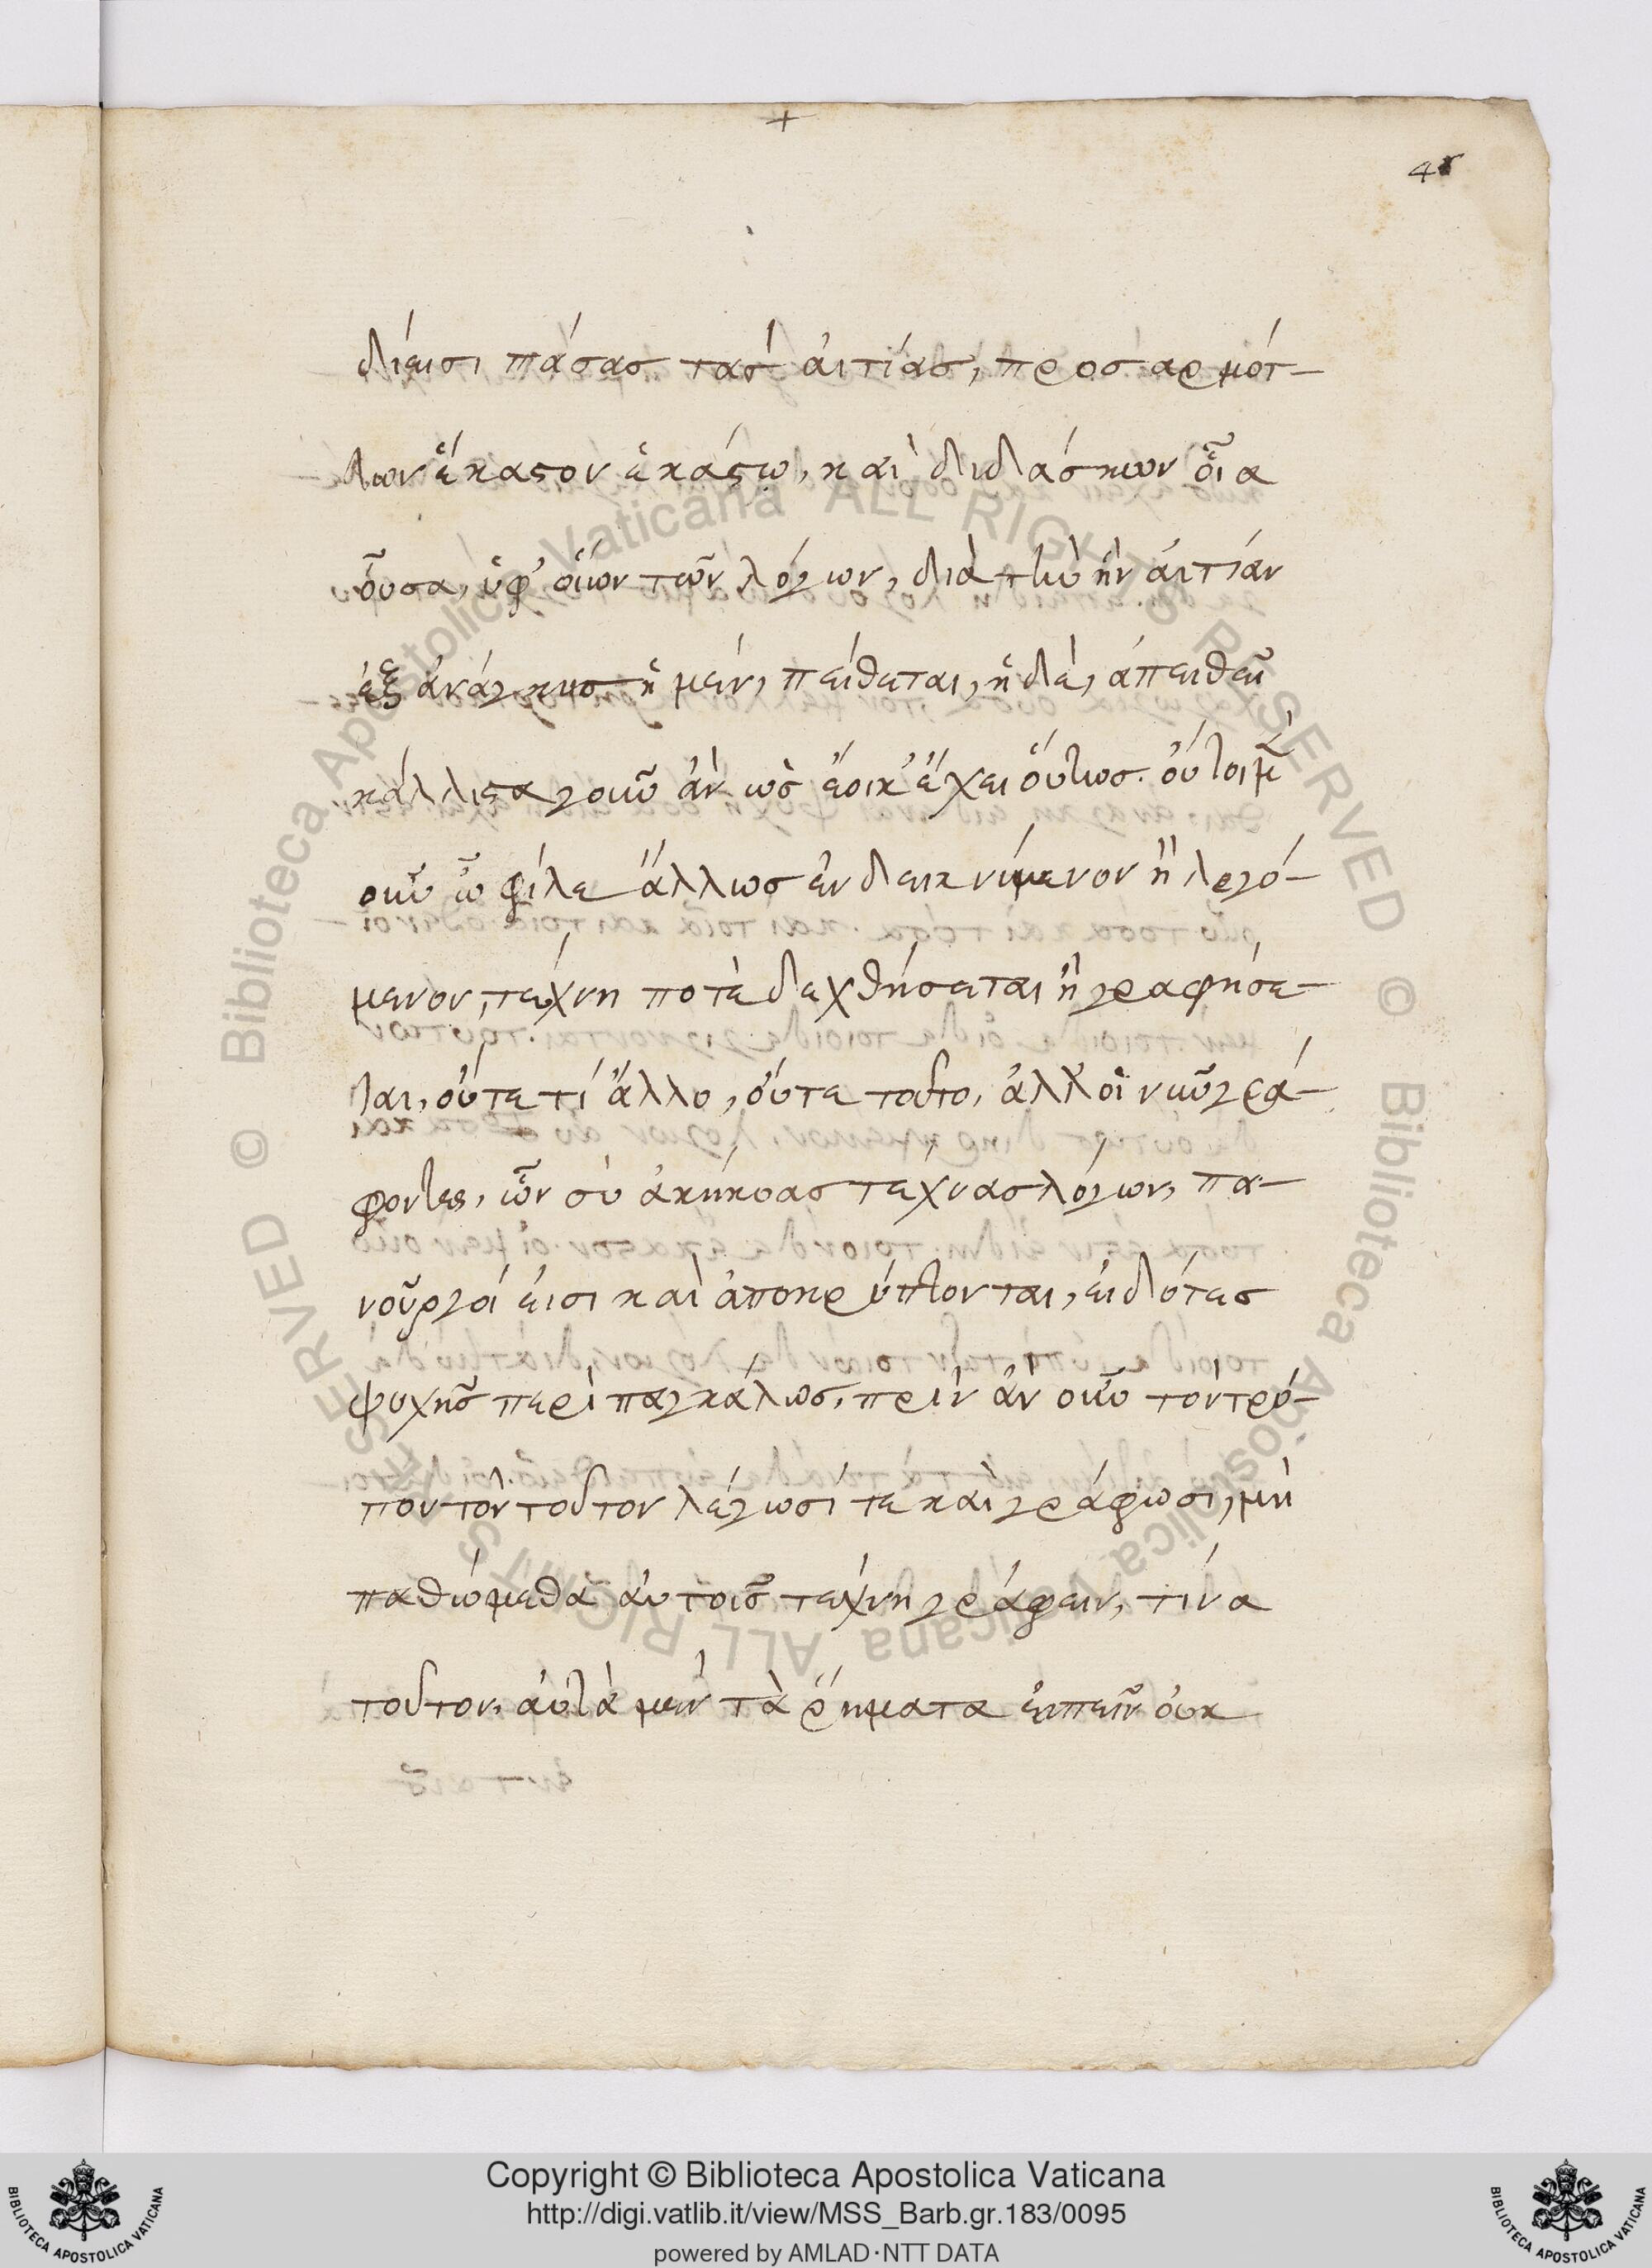 +
4r
δίεισι πάσας τὰς αἰτίας, προσαρμότ-
των ἕκαστον ἑκάστω, καὶ διδάσκων οἵα
οὖσα, ὑφ' οἵων τῶν λόγων, διὰ τὴν ἣν αἰτίαν
ἐξ ἀνάγκης ἡ μὲν, πείθεται, ἡ δὲ, ἀπειθεῖ
κάλλιστα γοῦν ἂν ὡς ἔοικ' ἔχει οὕτως. οὔτοι μὲν
οὖν ὦ φίλε ἄλλως ἐνδεικνύμενον ἢ λεγό-
μενον, τέχνη ποτὲ δεχθήσεται ἢ γραφήσε-
ται, οὔτε τί ἄλλο, οὔτε τοῦτο, ἀλλ' οἱ νῦν γρά-
φοντες, ὧν σὺ ἀκήκοας τέχνας λόγων, πα-
νοῦργοί εἰσι καὶ ἀποκρύπτονται, εἰδότες
ψυχῆς περὶ παγκάλως, πρὶν ἂν οὖν τὸν τρό-
πον τὸν τοῦτον λέγωσί τε καὶ γράφωσι, μὴ
παθώμεθα αὐτοῖς τέχνη γράφειν, τίνα
τοῦτον, αὐτὰ μὲν τὰ ῥήματα εἰπεῖν οὐκ
© Biblioteca Apostolica Vaticana ALL RIGHTS RESERVED © Biblioteca Apostolica Vaticana ALL RIGHTS RESERVED
Copyright © Biblioteca Apostolica Vaticana
http://digi.vatlib.it/view/MSS_Barb.gr.183/0095
powered by AMLAD·NTT DATA
BIBLIOTECA APOSTOLICA VATICANA
BIBLIOTECA APOSTOLICA VATICANA